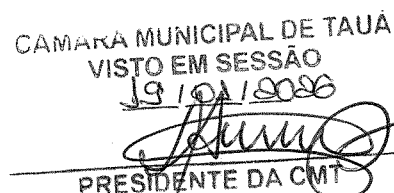 CAMARA MUNICIPAL DE TAUÁ
VISTO EM SESSÃO
19/01/2026
PRESIDENTE DA CMT